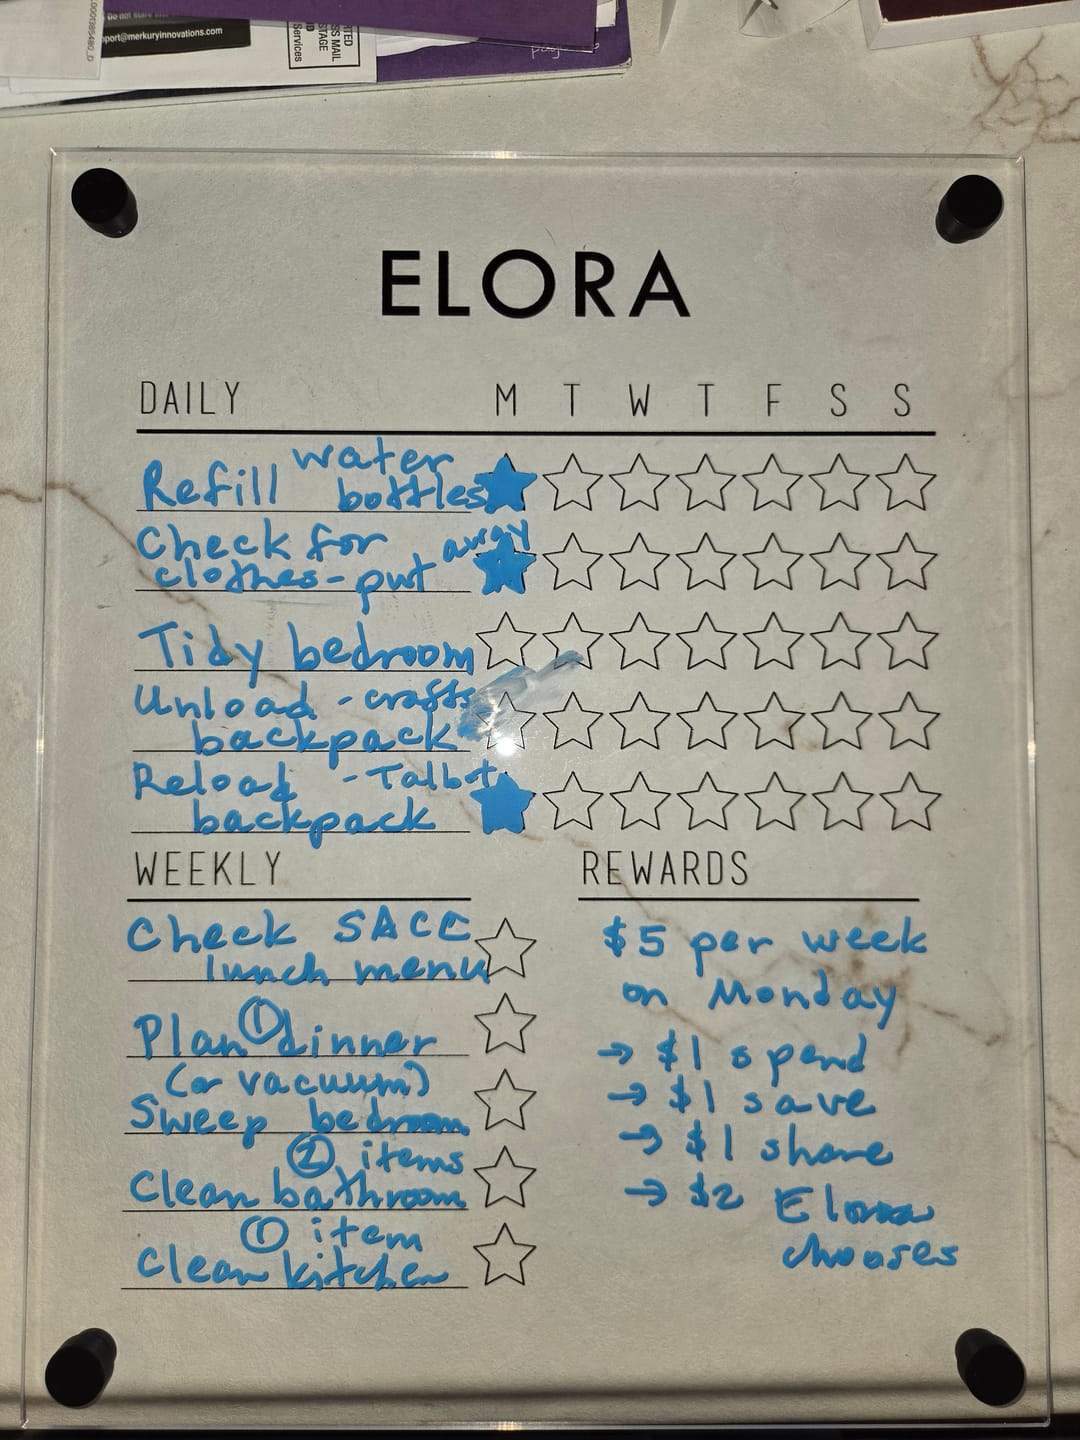 port@merkuryinnovations.com
ELORA
DAILY M T W T F S S
Refill water bottles
Check for clothes - put away
Tidy bedroom
Unload - crafts
backpack
Reload - Talbot
backpack
WEEKLY
Check SACC
lunch menu
Plan ① dinner
(or vacuum)
Sweep bedroom
② items
Clean bathroom
① item
Clean kitchen
REWARDS
$5 per week
on Monday
→ $1 spend
→ $1 save
→ $1 share
→ $2 Elora
chooses